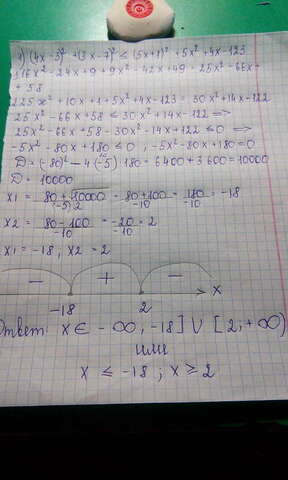 1) (4x-3)² + (3x-7)² ≤ (5x+1)² + 5x² + 4x - 123
16x² - 24x + 9 + 9x² - 42x + 49 = 25x² - 66x +
+ 58
225x² + 10x + 1 + 5x² + 4x - 123 = 30x² + 14x - 122
25x² - 66x + 58 ≤ 30x² + 14x - 122 =>
25x² - 66x + 58 - 30x² - 14x + 122 ≤ 0 =>
-5x² - 80x + 180 ≤ 0 ; -5x² - 80x + 180 = 0
D = (-80)² - 4·(-5)·180 = 6400 + 3600 = 10000
D = 10000
x1 = 80 + √10000 / (-5)·2 = 80+100 / -10 = 180 / -10 = -18
x2 = 80 - 100 / -10 = -20 / -10 = 2
x1 = -18; x2 = 2
- + -
-18 2 x
Ответ: x ∈ -∞, -18] ∪ [2; +∞)
или
x ≤ -18 ; x ≥ 2